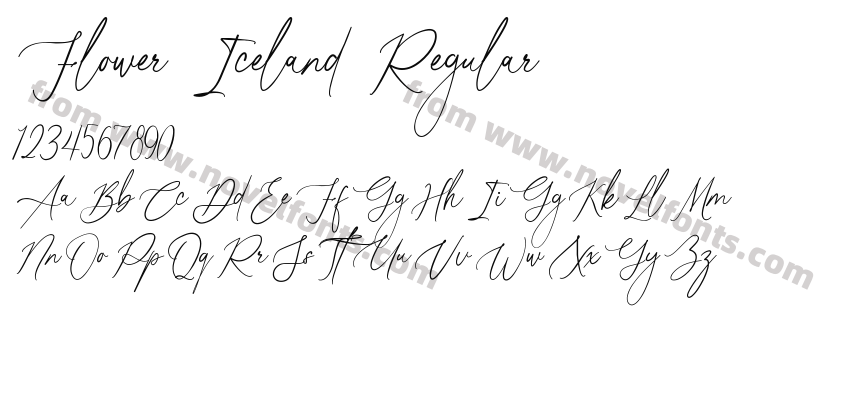 Flower Iceland Regular
1234567890
Aa Bb Cc Dd Ee Ff Gg Hh Ii Jj Kk Ll Mm
Nn Oo Pp Qq Rr Ss Tt Uu Vv Ww Xx Yy Zz
from www.novelfonts.com
from www.novelfonts.com